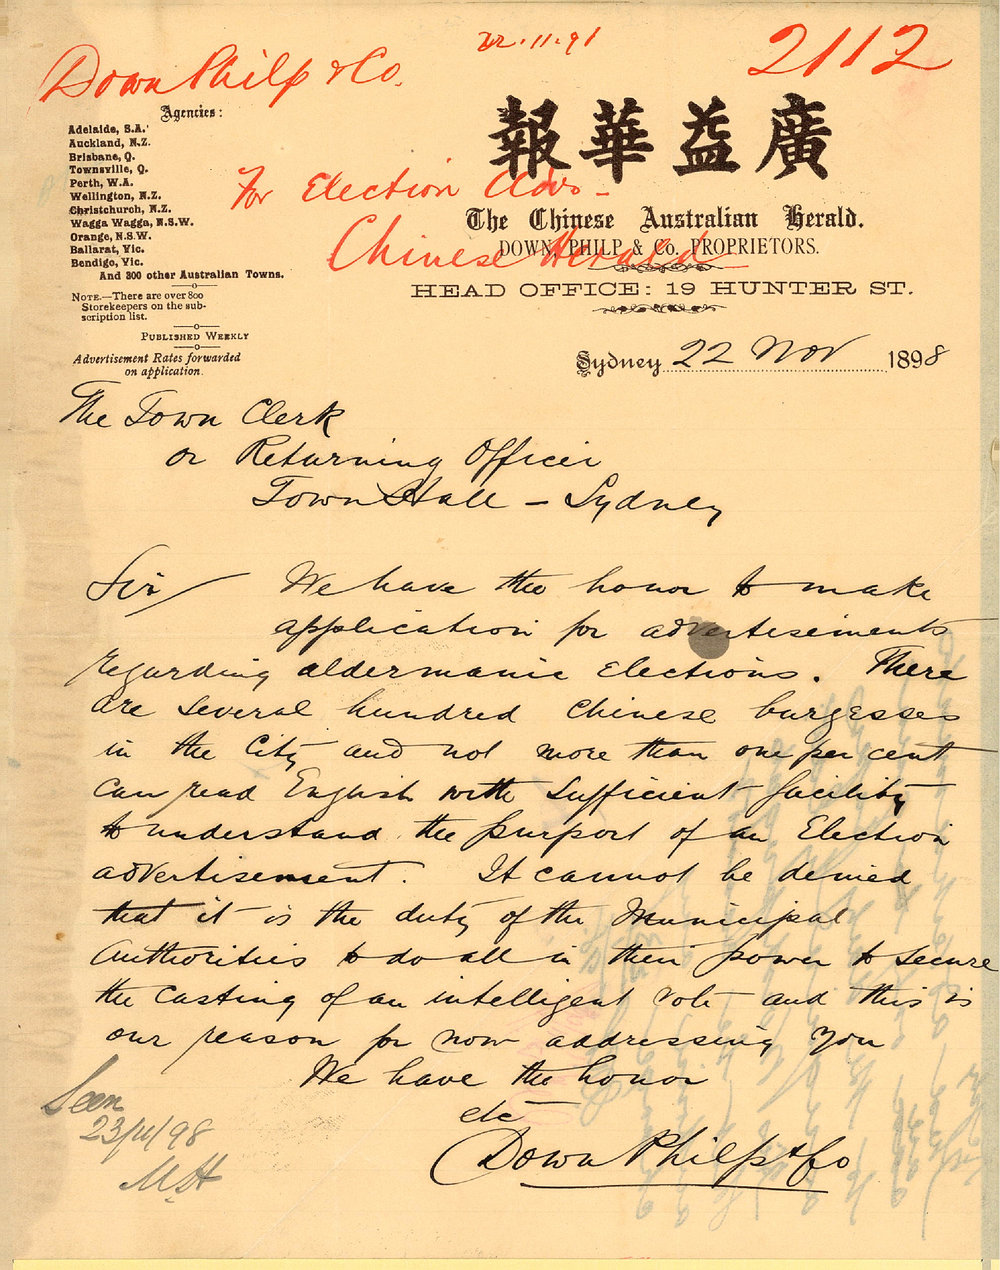 22.11.98
2112
Down Philp & Co.
Agencies:
Adelaide, S.A.
Auckland, N.Z.
Brisbane, Q.
Townsville, Q.
Perth, W.A.
Wellington, N.Z.
Christchurch, N.Z.
Wagga Wagga, N.S.W.
Orange, N.S.W.
Ballarat, Vic.
Bendigo, Vic.
And 300 other Australian Towns.
NOTE.—There are over 800
Storekeepers on the sub-
scription list.
PUBLISHED WEEKLY
Advertisement Rates forwarded
on application.
報華益廣
For Election Advs -
The Chinese Australian Herald.
Chinese Herald
DOWN, PHILP & Co. PROPRIETORS.
HEAD OFFICE: 19 HUNTER ST.
Sydney 22 Nov 1898
The Town Clerk
or Returning Officer
Town Hall - Sydney
Sir/ We have the honor to make
application for advertisements
regarding aldermanic elections. There
are several hundred Chinese burgesses
in the City and not more than one per cent
can read English with sufficient facility
to understand the purport of an Election
advertisement. It cannot be denied
that it is the duty of the Municipal
Authorities to do all in their power to secure
the casting of an intelligent vote and this is
our reason for now addressing you
We have the honor
etc
Down Philp & Co
Seen
23/11/98